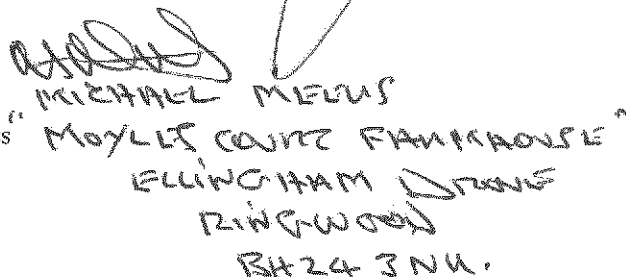 MICHAEL MELLIS
s "MOYLES COURT FARMHOUSE"
ELLINGHAM DROVE
RINGWOOD
BH24 3NU.